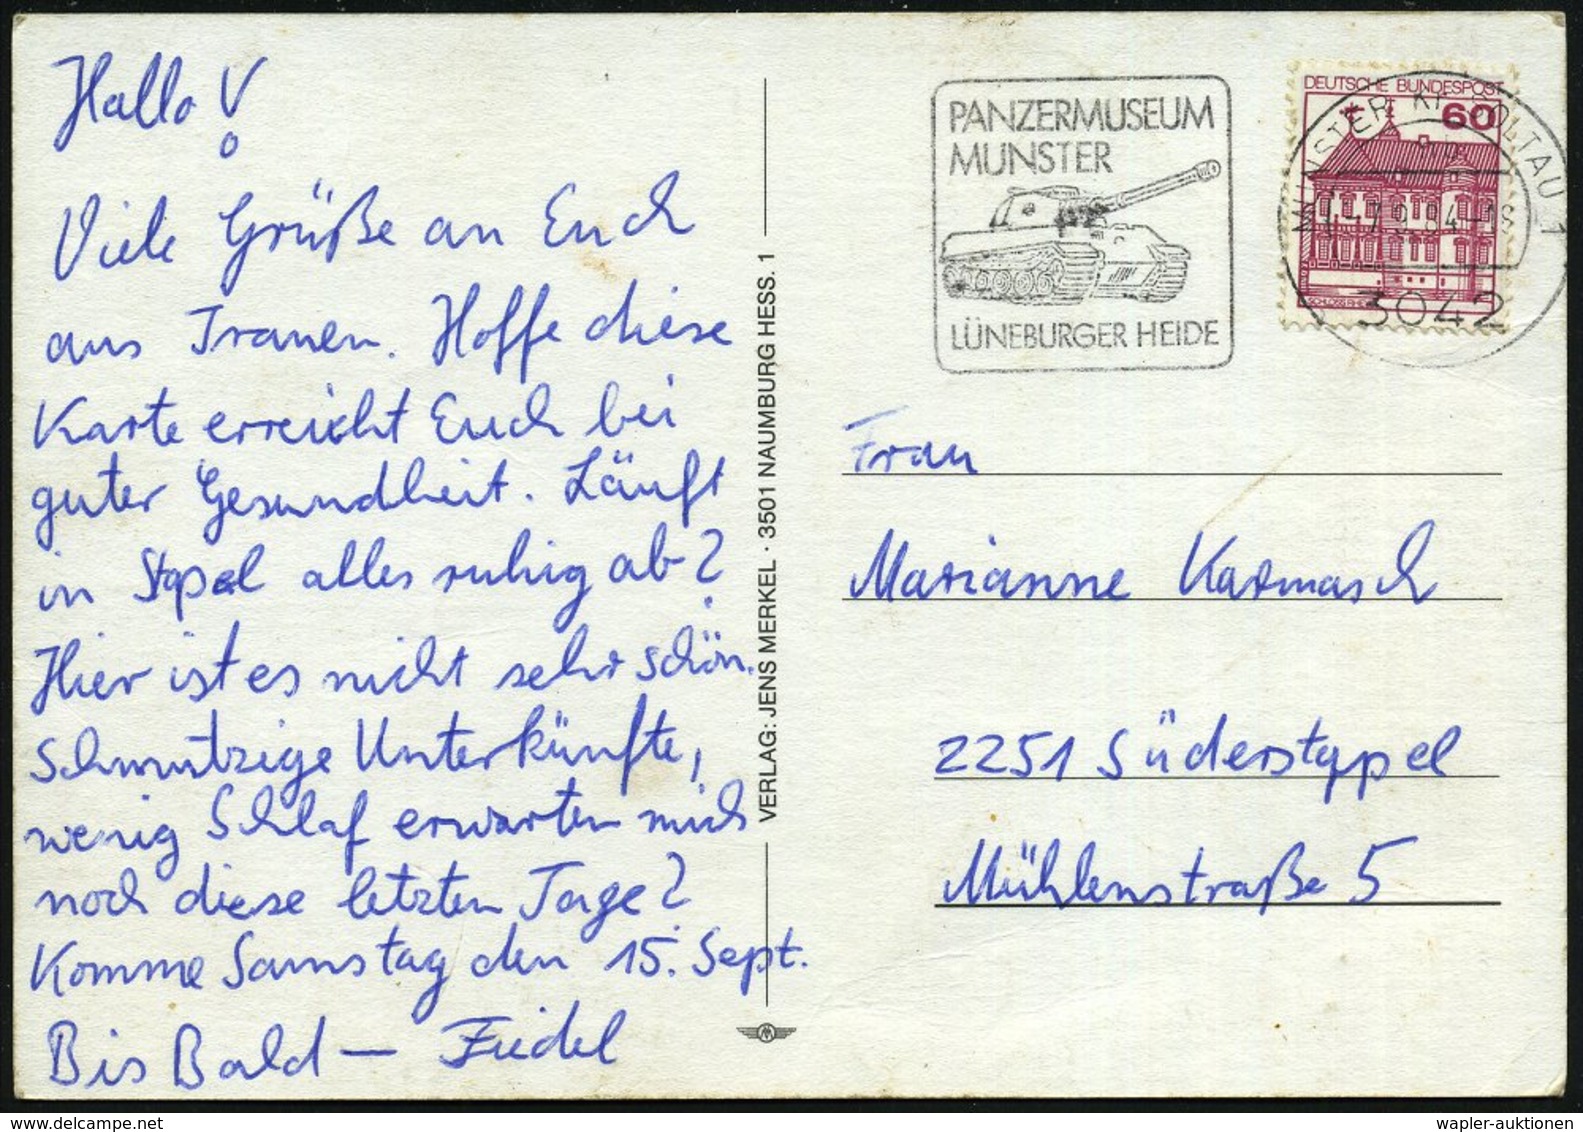 Hallo !
Viele Grüße an Euch
aus Trauen. Hoffe diese
Karte erreicht Euch bei
guter Gesundheit. Läuft
in Stapel alles ruhig ab?
Hier ist es nicht sehr schön.
Schmutzige Unterkünfte,
wenig Schlaf erwarten mich
noch diese letzten Tage?
Komme Samstag den 15. Sept.
Bis Bald —
VERLAG: JENS MERKEL · 3501 NAUMBURG HESS. 1
PANZERMUSEUM
MUNSTER
LÜNEBURGER HEIDE
DEUTSCHE BUNDESPOST
60
MUNSTER, KR SOLTAU 1
-7.9.84-18
3042
Frau
Marianne Karmasch
2251 Süderstapel
Mühlenstraße 5
wapler-auktionen